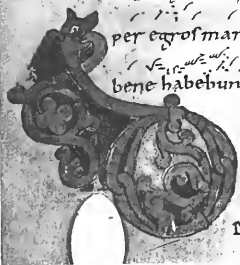 per egros man
bene habebun